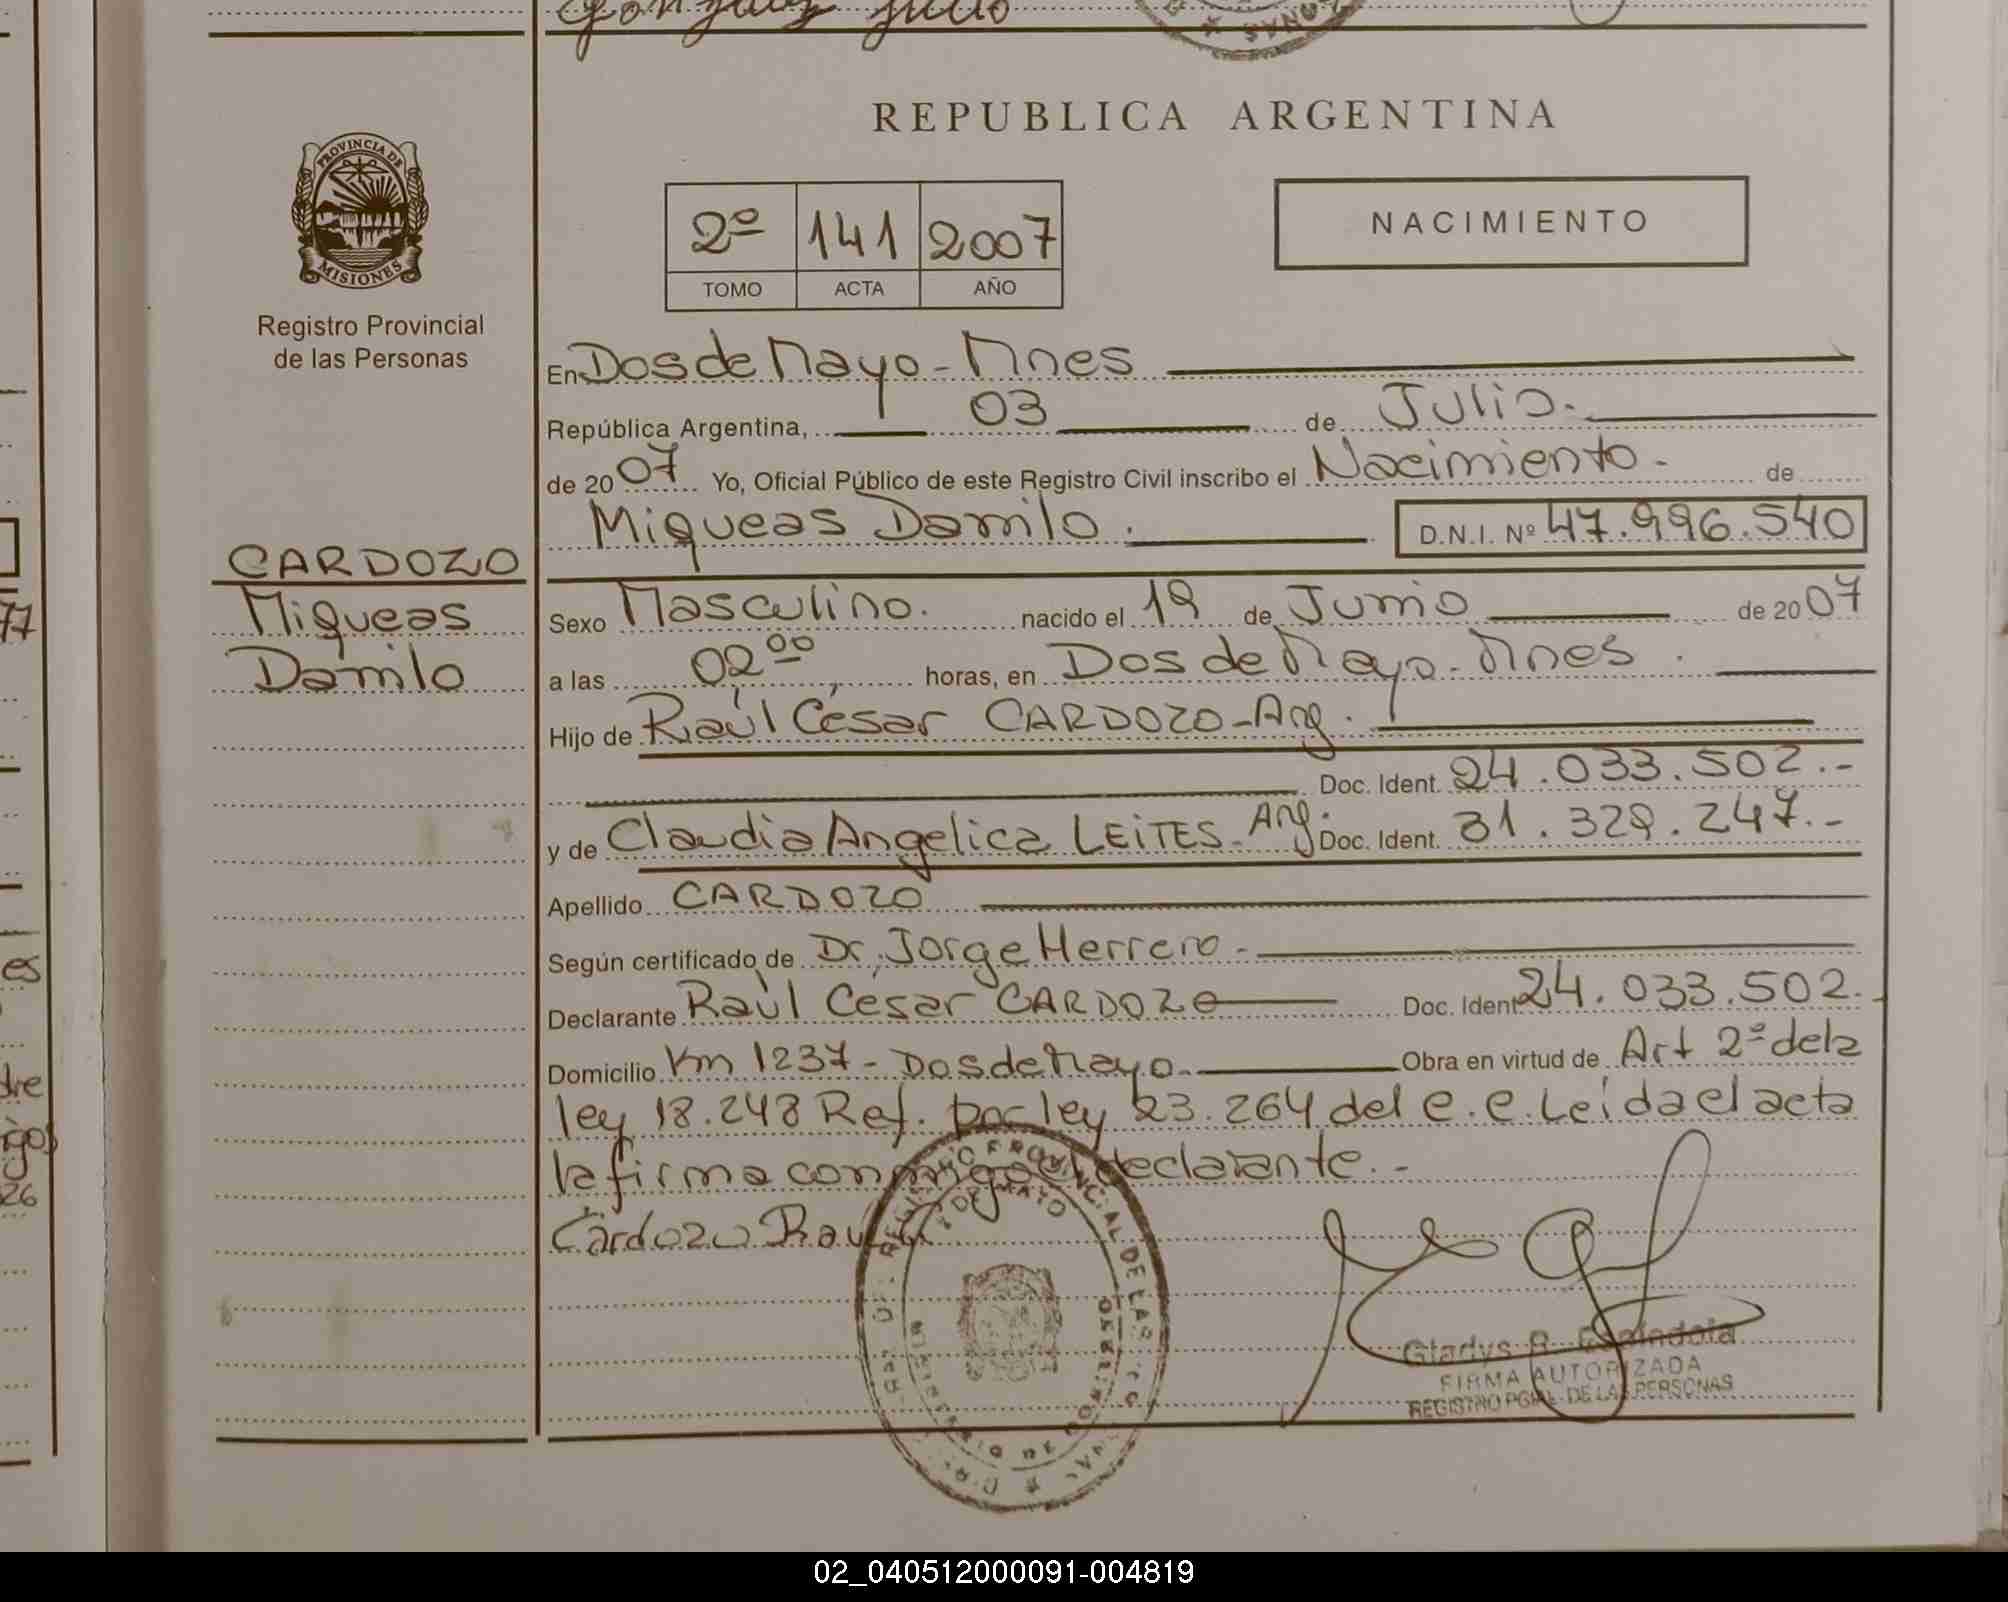 Gonzalez Julio
REPUBLICA ARGENTINA
PROVINCIA DE
MISIONES
2º 141 2007
TOMO ACTA AÑO
NACIMIENTO
Registro Provincial
de las Personas
En Dos de Mayo - Mnes
República Argentina, 03 de Julio.
de 20 07 Yo, Oficial Público de este Registro Civil inscribo el Nacimiento - de
Miqueas Danilo. D.N.I. Nº 47.996.540
CARDOZO
Miqueas
Danilo
Sexo Masculino. nacido el 19 de Junio de 20 07
a las 02 00 horas, en Dos de Mayo - Mnes.
Hijo de Raúl César CARDOZO - Arg.
Doc. Ident. 24.033.502.-
y de Claudia Angelica LEITES - Arg. Doc. Ident. 31.329.247.-
Apellido CARDOZO
Según certificado de Dr. Jorge Herrero -
Declarante Raúl César CARDOZO Doc. Ident. 24.033.502.
Domicilio Km 1237 - Dos de Mayo. Obra en virtud de Art 2º de la
ley 18.248 Ref. por ley 23.264 del C.C. Leída el acta
la firma conmigo el declarante.-
Cardozo Raul C
2 DE MAYO
FIRMA AUTORIZADA
02_040512000091-004819
77
es
26